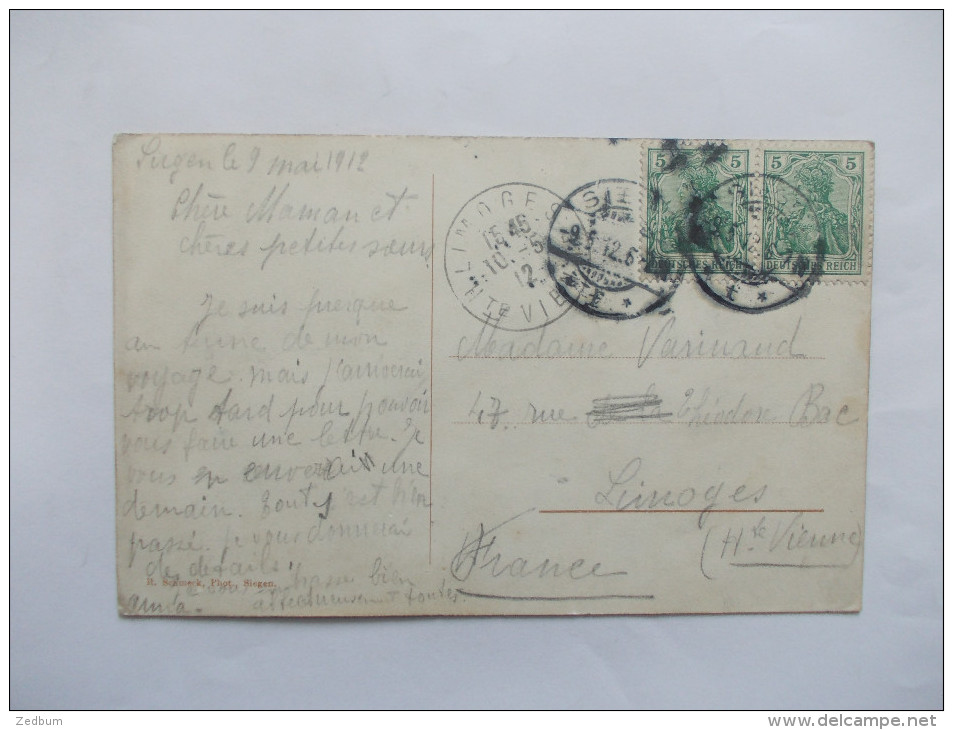 Siegen le 9 mai 1912
Chère Maman et
chères petites sœurs
Je suis presque
au terme de mon
voyage. mais j'arriverai
trop tard pour pouvoir
vous faire une lettre. Je
vous en enverrai une
demain. Tout s'est bien
passé. je vous donnerai
des détails.
vous embrasse bien
affectueusement toutes.
R. Schmeck, Phot., Siegen.
LIMOGES
15 45
10 - 5
12
HTE VIENNE
5 5
5 5
DEUTSCHES REICH
DEUTSCHES REICH
Madame Varinaud
47, rue Théodore Bac
Limoges
(Hte Vienne)
France
Zedbum
www.delcampe.net